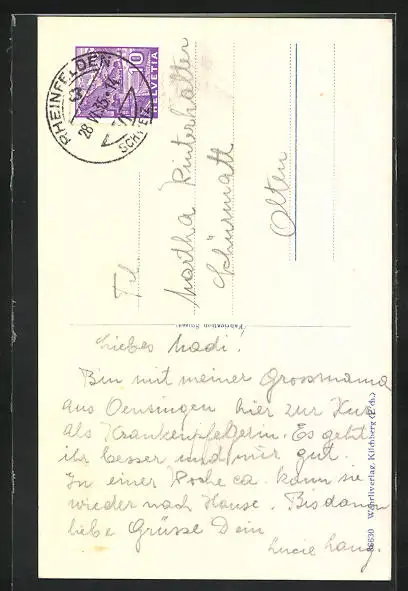 RHEINFELDEN
3
28.VI.35.-14
SCHWEIZ
10
HELVETIA
Frl.
Martha Winterhalter
Schürmatt
Olten
Fabrication Suisse
Liebes Madi.
Bin mit meiner Grossmama
aus Oensingen hier zur Kur
als Krankenpfelgerin. Es geht
ihr besser und mir gut.
In einer Woche ca. kann sie
wieder nach Hause. Bis dann
liebe Grüsse Dein
Lucie Lang.
36630 Wehrliverlag, Kilchberg (Zch.)